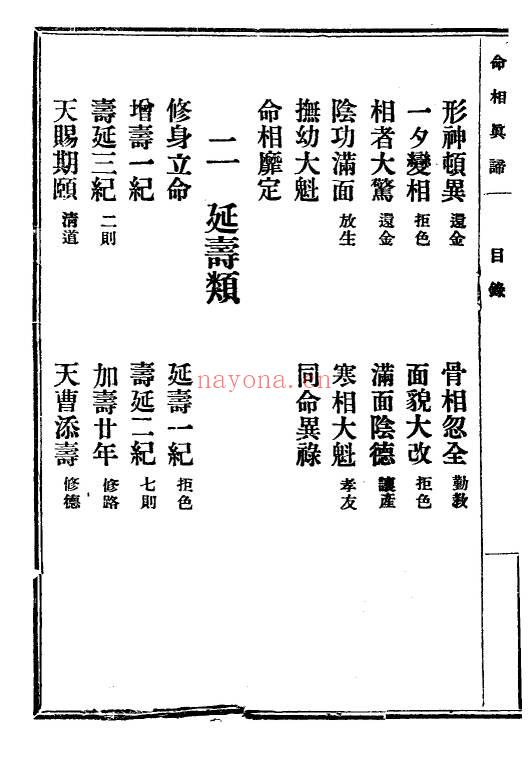 命相眞諦
目錄
形神頓異 還金
骨相忽全 勤教
一夕變相 拒色
面貌大改 拒色
相者大驚 還金
滿面陰德 讓產
陰功滿面 放生
寒相大魁 孝友
撫幼大魁
同命異祿
命相靡定
二 延壽類
修身立命
延壽一紀 拒色
增壽一紀
壽延二紀 七則
壽延三紀 二則
加壽廿年 修路
天賜期頤 清道
天曹添壽 修德
nayona.cn